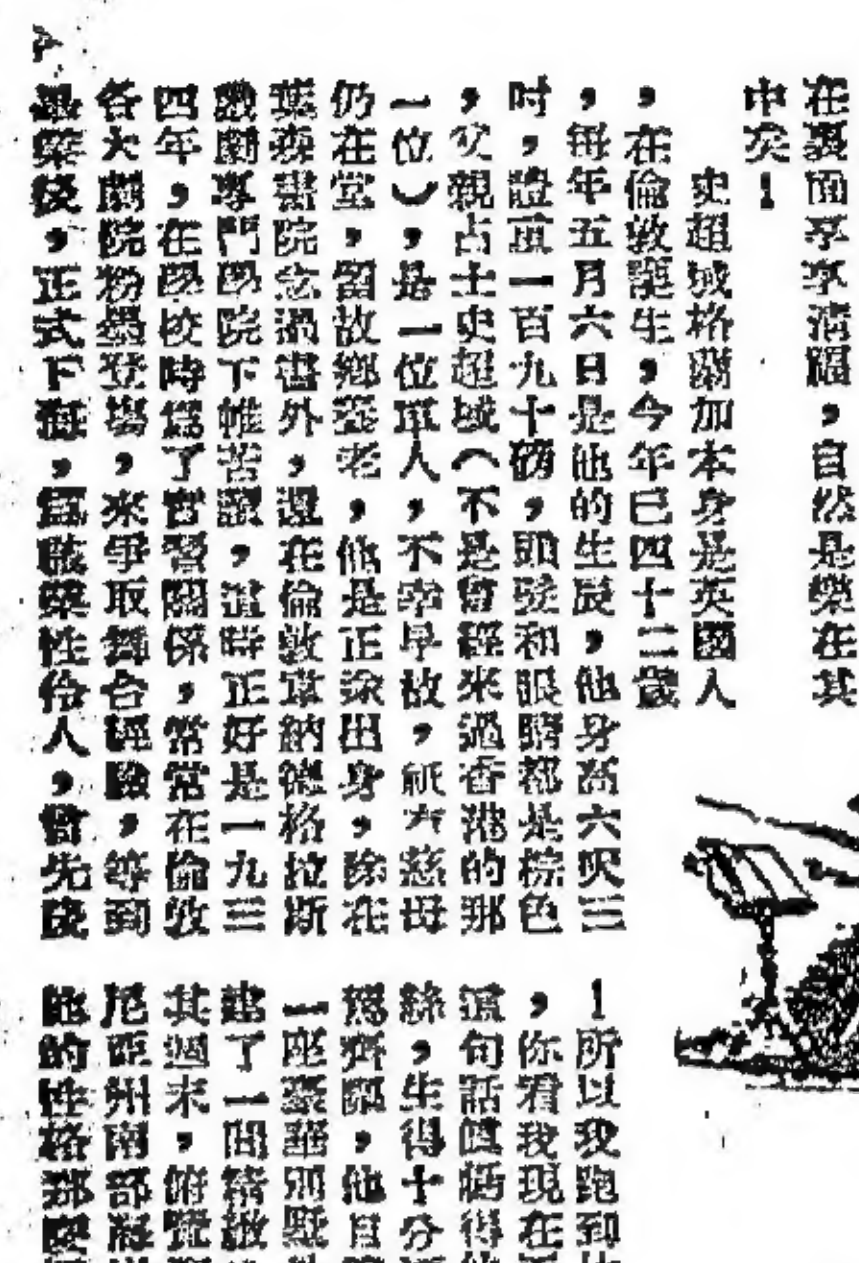 在裏面享享清福，自然是樂在其
中矣！
史超域格蘭加本身是英國人
，在倫敦誕生，今年已四十二歲
，每年五月六日是他的生辰，他身高六呎三
吋，體重一百九十磅，頭髮和眼睛都是棕色
，父親占士史超域（不是曾經來過香港的那
一位），是一位軍人，不幸早故，祇有慈母
仍在堂，留故鄉養老，他是正途出身，除在
葉森書院念過書外，還在倫敦韋納德格拉斯
戲劇專門學院下帷苦讀，這時正好是一九三
四年，在學校時爲了實習關係，常常在倫敦
各大劇院粉墨登場，來爭取舞台經驗，等到
畢業後，正式下海，爲職業性伶人，曾先後
！所以我跑到
，你看我現在
這句話
絲，生得十分
鄰，他目
一座豪華別墅
建了一間精緻
其週末，俯覽
尼亞州南部
他的性格那麼